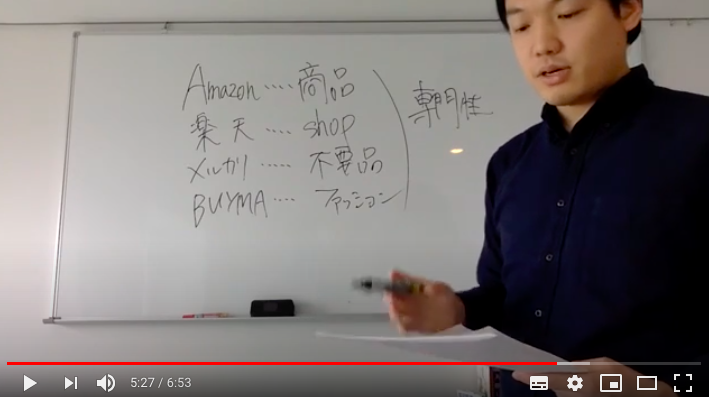 Amazon ・・・・ 商品
専門性
楽天 ・・・・ shop
メルカリ ・・・・・ 不要品
BUYMA ・・・・ ファッション
5:27 / 6:53